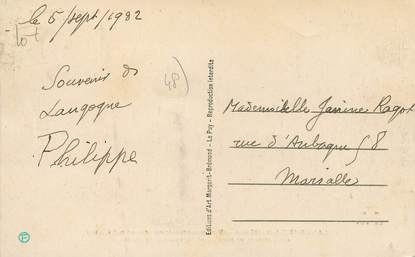 le 5/sept/1932
lot
48
Souvenir de
Langogne
Philippe
Editions d'Art. Margerit-Brémond - Le Puy - Reproduction interdite
Mademoiselle Janine Ragot
rue d'Aubagne 58
Marseille